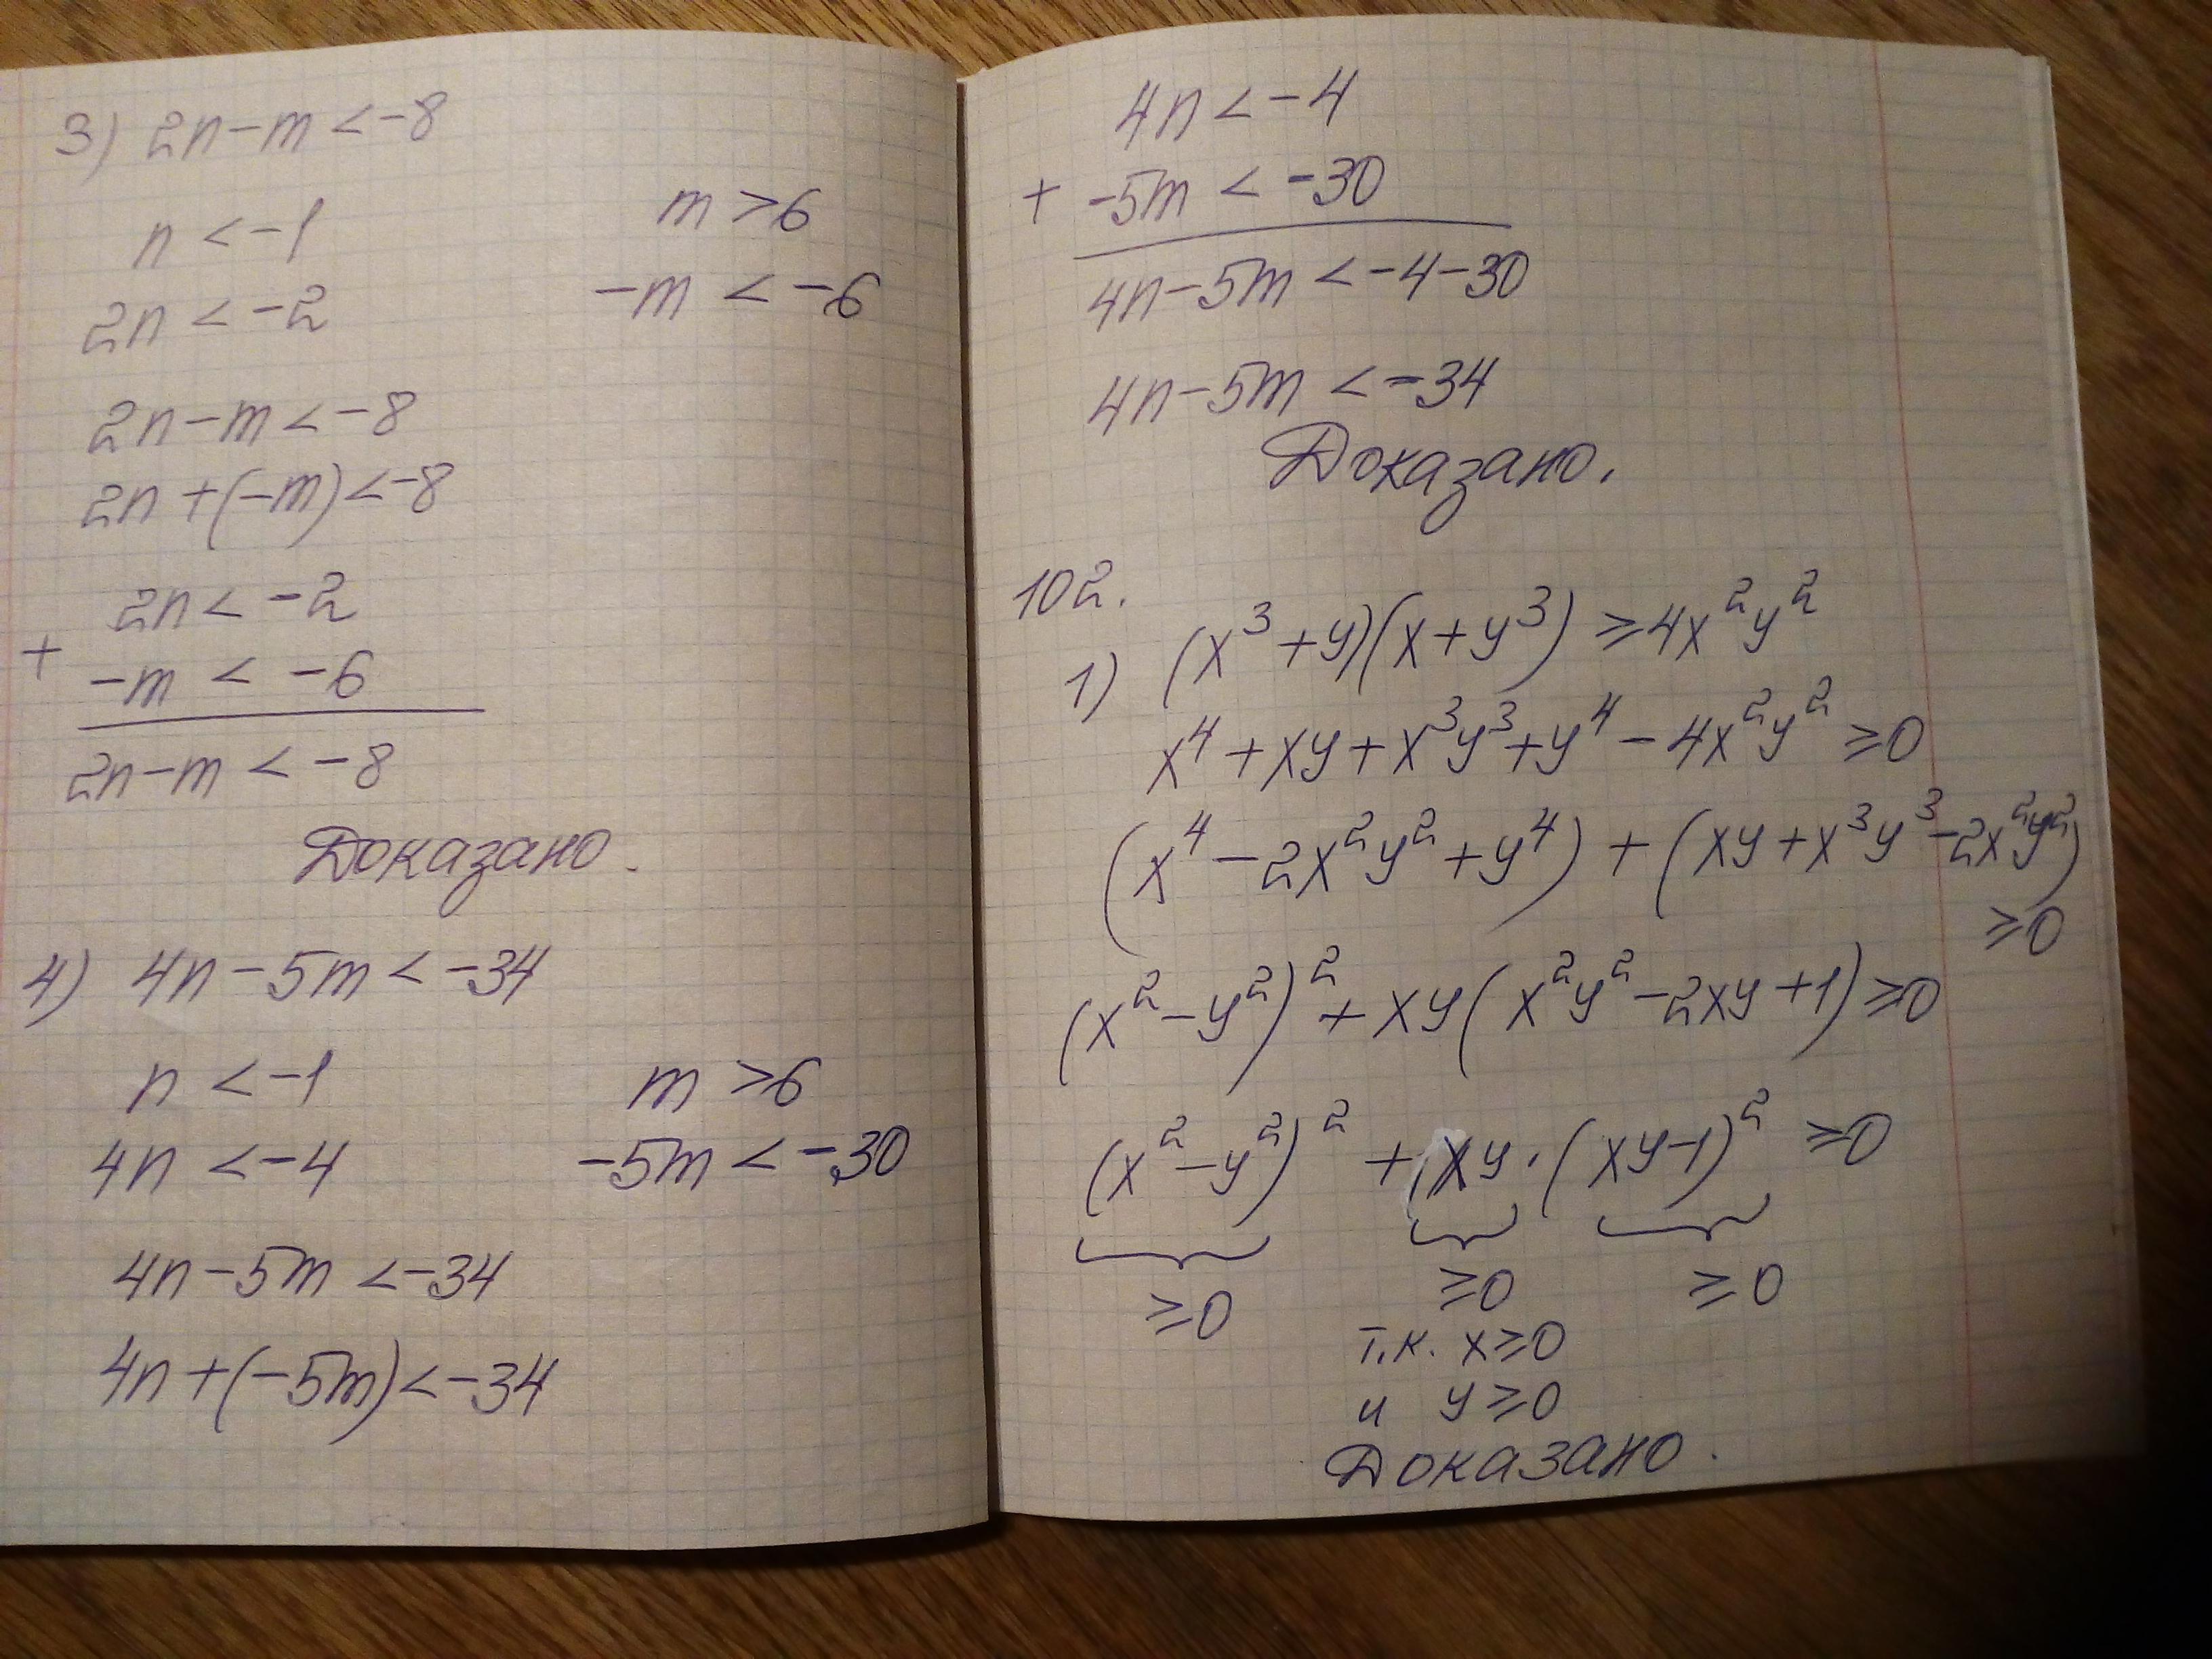 3) 2n-m<-8
n<-1 m>6
2n<-2 -m<-6
2n-m<-8
2n+(-m)<-8
2n<-2
+
-m<-6
2n-m<-8
Доказано.
4) 4n-5m<-34
n<-1 m>6
4n<-4 -5m<-30
4n-5m<-34
4n+(-5m)<-34
4n<-4
+ -5m<-30
4n-5m<-4-30
4n-5m<-34
Доказано.
102.
1) (x³+y)(x+y³)≥4x²y²
x⁴+xy+x³y³+y⁴-4x²y²≥0
(x⁴-2x²y²+y⁴)+(xy+x³y³-2x²y²)
≥0
(x²-y²)²+xy(x²y²-2xy+1)≥0
(x²-y²)²+xy·(xy-1)²≥0
≥0 ≥0 ≥0
т.к. x≥0
и y≥0
Доказано.